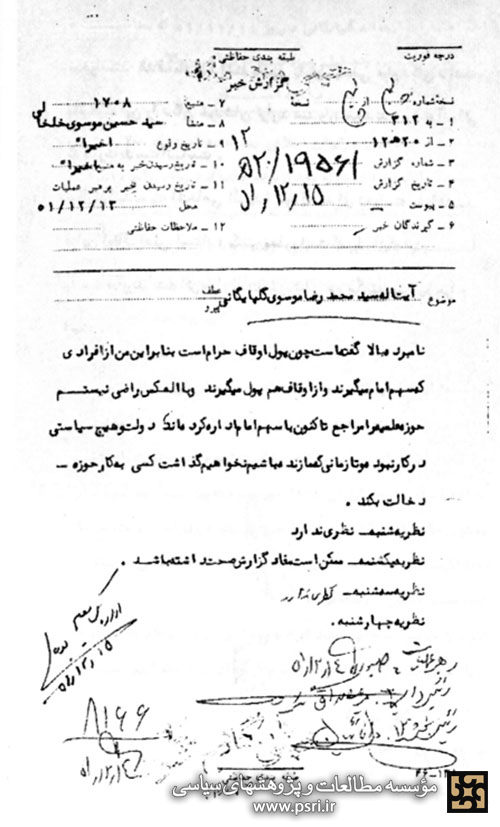 درجه فوریت
طبقه بندی حفاظتی
گزارش خبر
نسخه شماره
از
نسخه
۱ - به ۳۱۲
۲ - از ۲۰ه۱۲
۳ - شماره گزارش ۱۹۵۶۱/۲۰ه۱۲
۴ - تاریخ گزارش ۵۱/۱۲/۱۵
۵ - پیوست
۶ - گیرندگان خبر
۷ - منبع ۱۷۰۸
۸ - منشأ سید حسین موسوی خلخالی
۹ - تاریخ وقوع اخیرا"
۱۰ - تاریخ رسیدن خبر به منبع اخیرا"
۱۱ - تاریخ رسیدن خبر برهبر عملیات
محل ۵۱/۱۲/۱۳
۱۲ - ملاحظات حفاظتی
موضوع آیت اله سید محمد رضا موسوی گلپایگانی
عطف
پیرو
نامبرده بالا گفته است چون پول اوقاف حرام است بنابراین من از افرادی
که سهم امام میگیرند و از اوقاف هم پول میگیرند و بالعکس راضی نیستم
حوزه علمیه را مراجع تاکنون با سهم امام اداره کرده اند دولت و هیچ سیاستی
در کار نبوده و تا زمانی که ما زنده میباشیم نخواهیم گذاشت کسی به کار حوزه -
دخالت بکند .
نظریه شنبه - نظری ندارد
نظریه یکشنبه - ممکن است مفاد گزارش صحت داشته باشد .
نظریه سه شنبه - نظری ندارد
نظریه چهارشنبه .
رهبر عملیات
۵۱/۱۲/۱۴
رئیس
رئیس
۵۱/۱۲/۱۵
۸۱۶۶
۵۱/۱۲/۱۴
طبقه بندی حفاظتی
مؤسسه مطالعات و پژوهشهای سیاسی
www.psri.ir